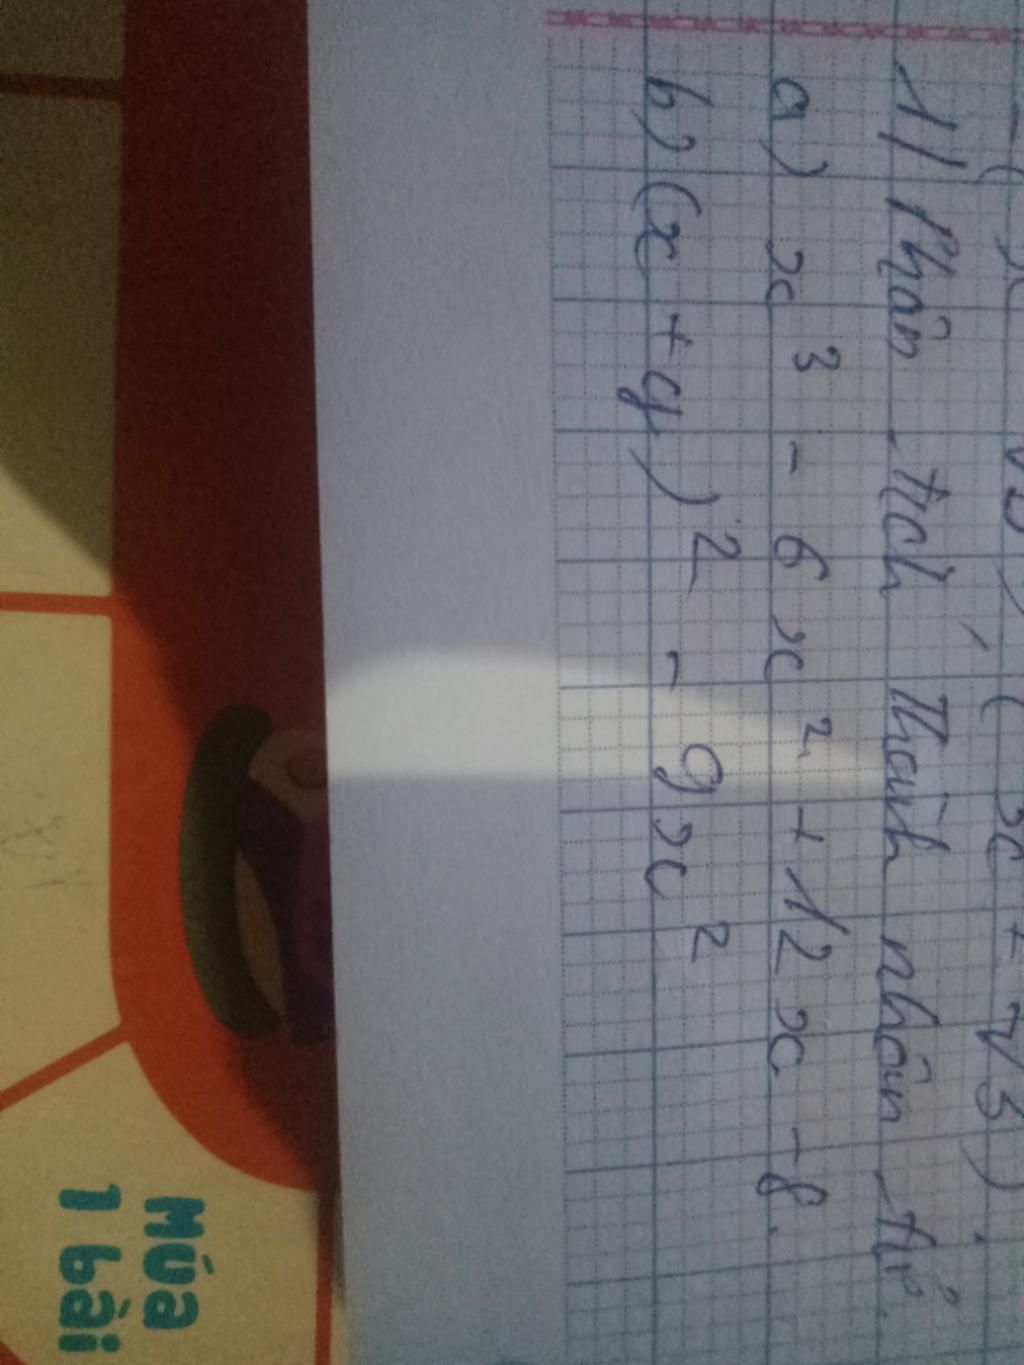 1) Phân tích thành nhân tử.
a) x³ - 6x² + 12x - 8.
b) (x + y)² - 9x²
Múa
1 bài